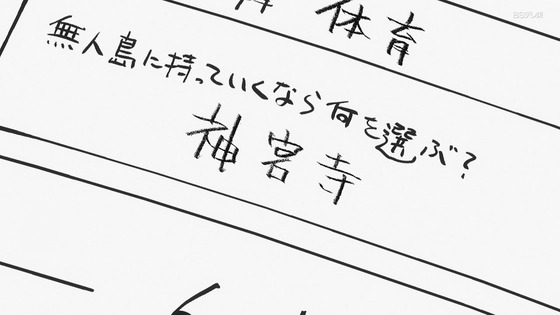 体育
無人島に持っていくなら何を選ぶ？
神宮寺